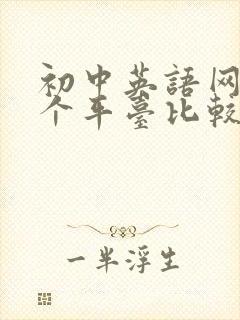 初中英語网
个平臺比較
一半浮生